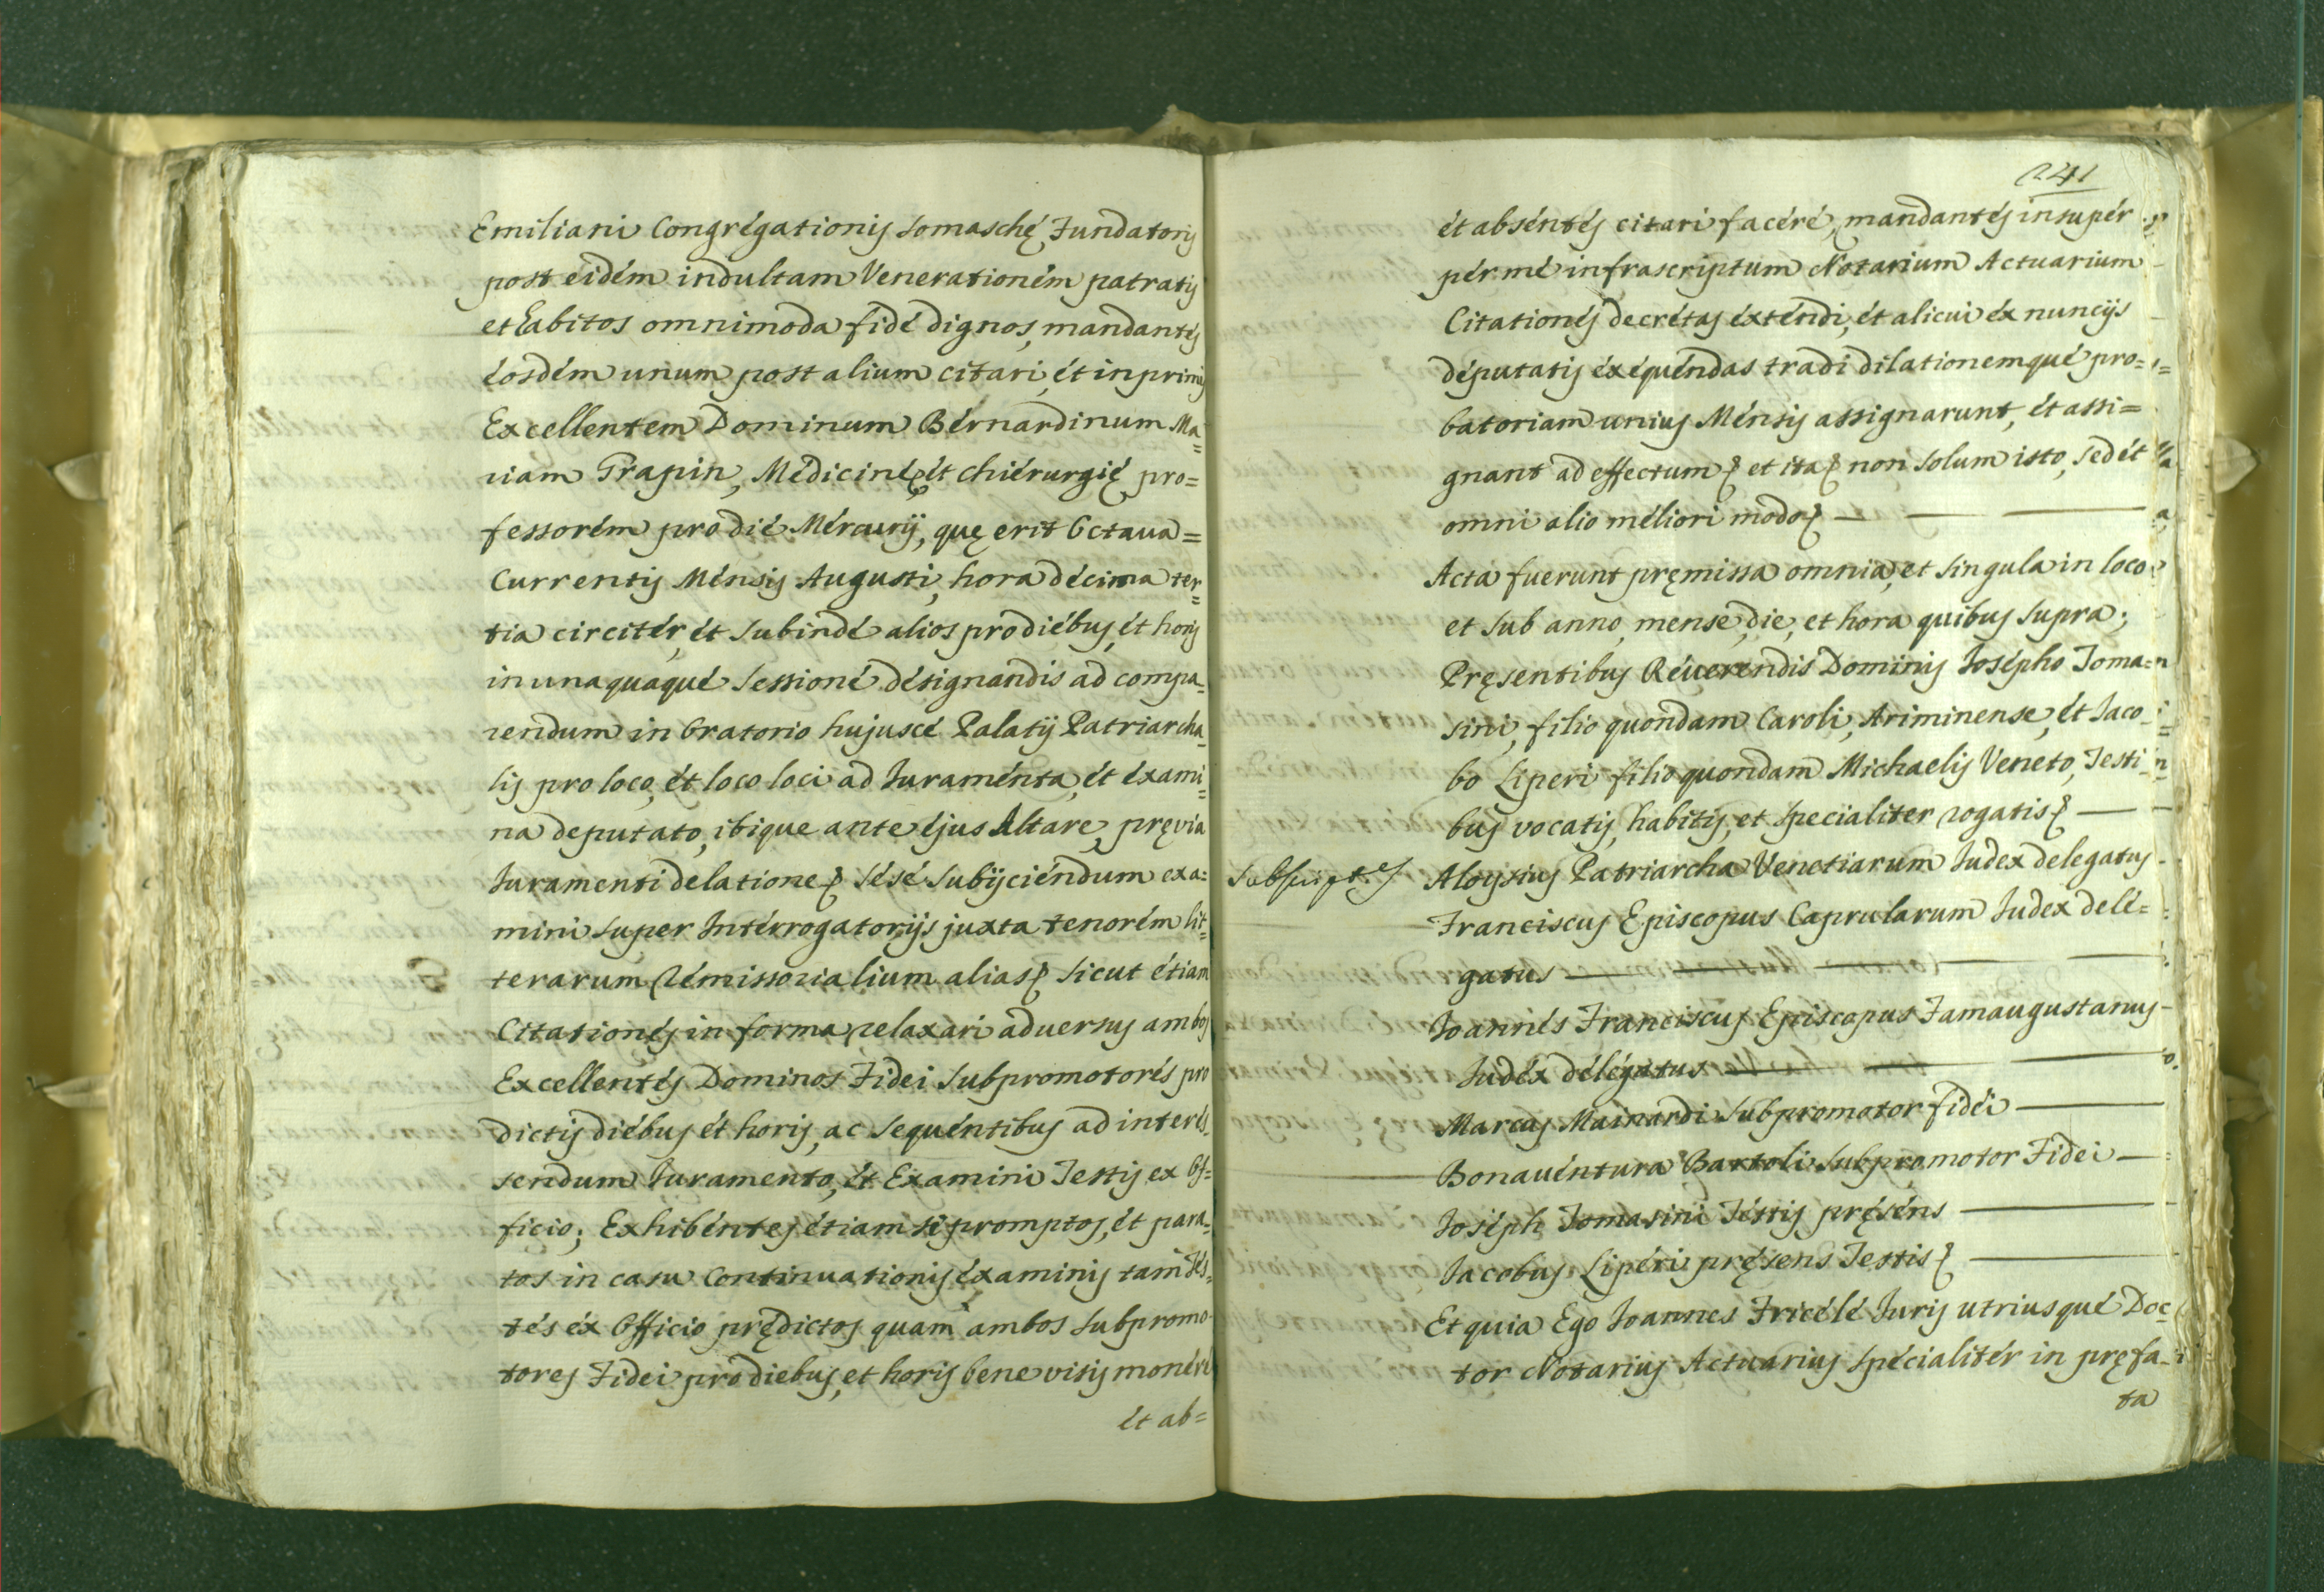 Emiliani Congregationis Somaschę Fundatoris
post eidem indultam Venerationem patratis
et habitos omnimoda fide dignos, mandantes
eosdem unum post alium citari, et in primis
Excellentem Dominum Bernardinum Ma=
riam Trapin, Medicinę, et Chierurgię pro=
fessorem pro die Mercurij, quę erit Octava=
Currentis Mensis Augusti, hora decima ter=
tia circiter, et subinde alios pro diebus, et horis
in unaquaque sessione designandis ad compa=
rendum in Oratorio hujusce Palatij Patriarcha=
lis pro loco, et loco loci ad Juramenta, et exami=
na deputato, ibique ante ejus Altare, pręvia
Juramenti delatione sese subijciendum exa=
mini super Interrogatorijs juxta tenorem lit=
terarum Remissorialium alias sicut etiam
Citationes in forma relaxari adversus ambos
Excellentes Dominos Fidei Subpromotores pro
dictis diebus et horis, ac sequentibus ad interes=
sendum Juramento, et Examini Testis ex Of=
ficio; Exhibentes etiam se promptos, et para=
tos in casu continuationis examinis tam Tes=
tes ex Officio prędictos quam ambos Subpromo=
tores Fidei pro diebus, et horis bene visis moneri
et ab=
241
et absentes citari facere, mandantes insuper
per me infrascriptum Notarium Actuarium
Citationes decretas extendi, et alicui ex nuncijs
deputatis exequendas tradi dilationemque pro=
batoriam unius Mensis assignarunt, et assi=
gnant ad effectum et ita non solum isto, sed et
omni alio meliori modo
Acta fuerunt pręmissa omnia, et singula in loco
et sub anno, mense, die, et hora quibus supra;
Pręsentibus Reverendis Dominis Josepho Toma=
sini, filio quondam Caroli, Ariminense, et Jaco=
bo Liperi filio quondam Michaelis Veneto, Testi=
bus vocatis, habitis, et specialiter rogatis
Subscriptes Aloysius Patriarcha Venetiarum Judex delegatus
Franciscus Episcopus Caprularum Judex dele=
gatus
Joannes Franciscus Episcopus Famaugustanus
Judex delegatus
Marcus Mainardi Subpromotor fidei
Bonaventura Bartoli Subpromotor Fidei
Joseph Tomasini Testis pręsens
Jacobus Liperi pręsens Testis
Et quia Ego Joannes Fricele Juris utriusque Doc=
tor Notarius Actuarius specialiter in pręfa=
ta